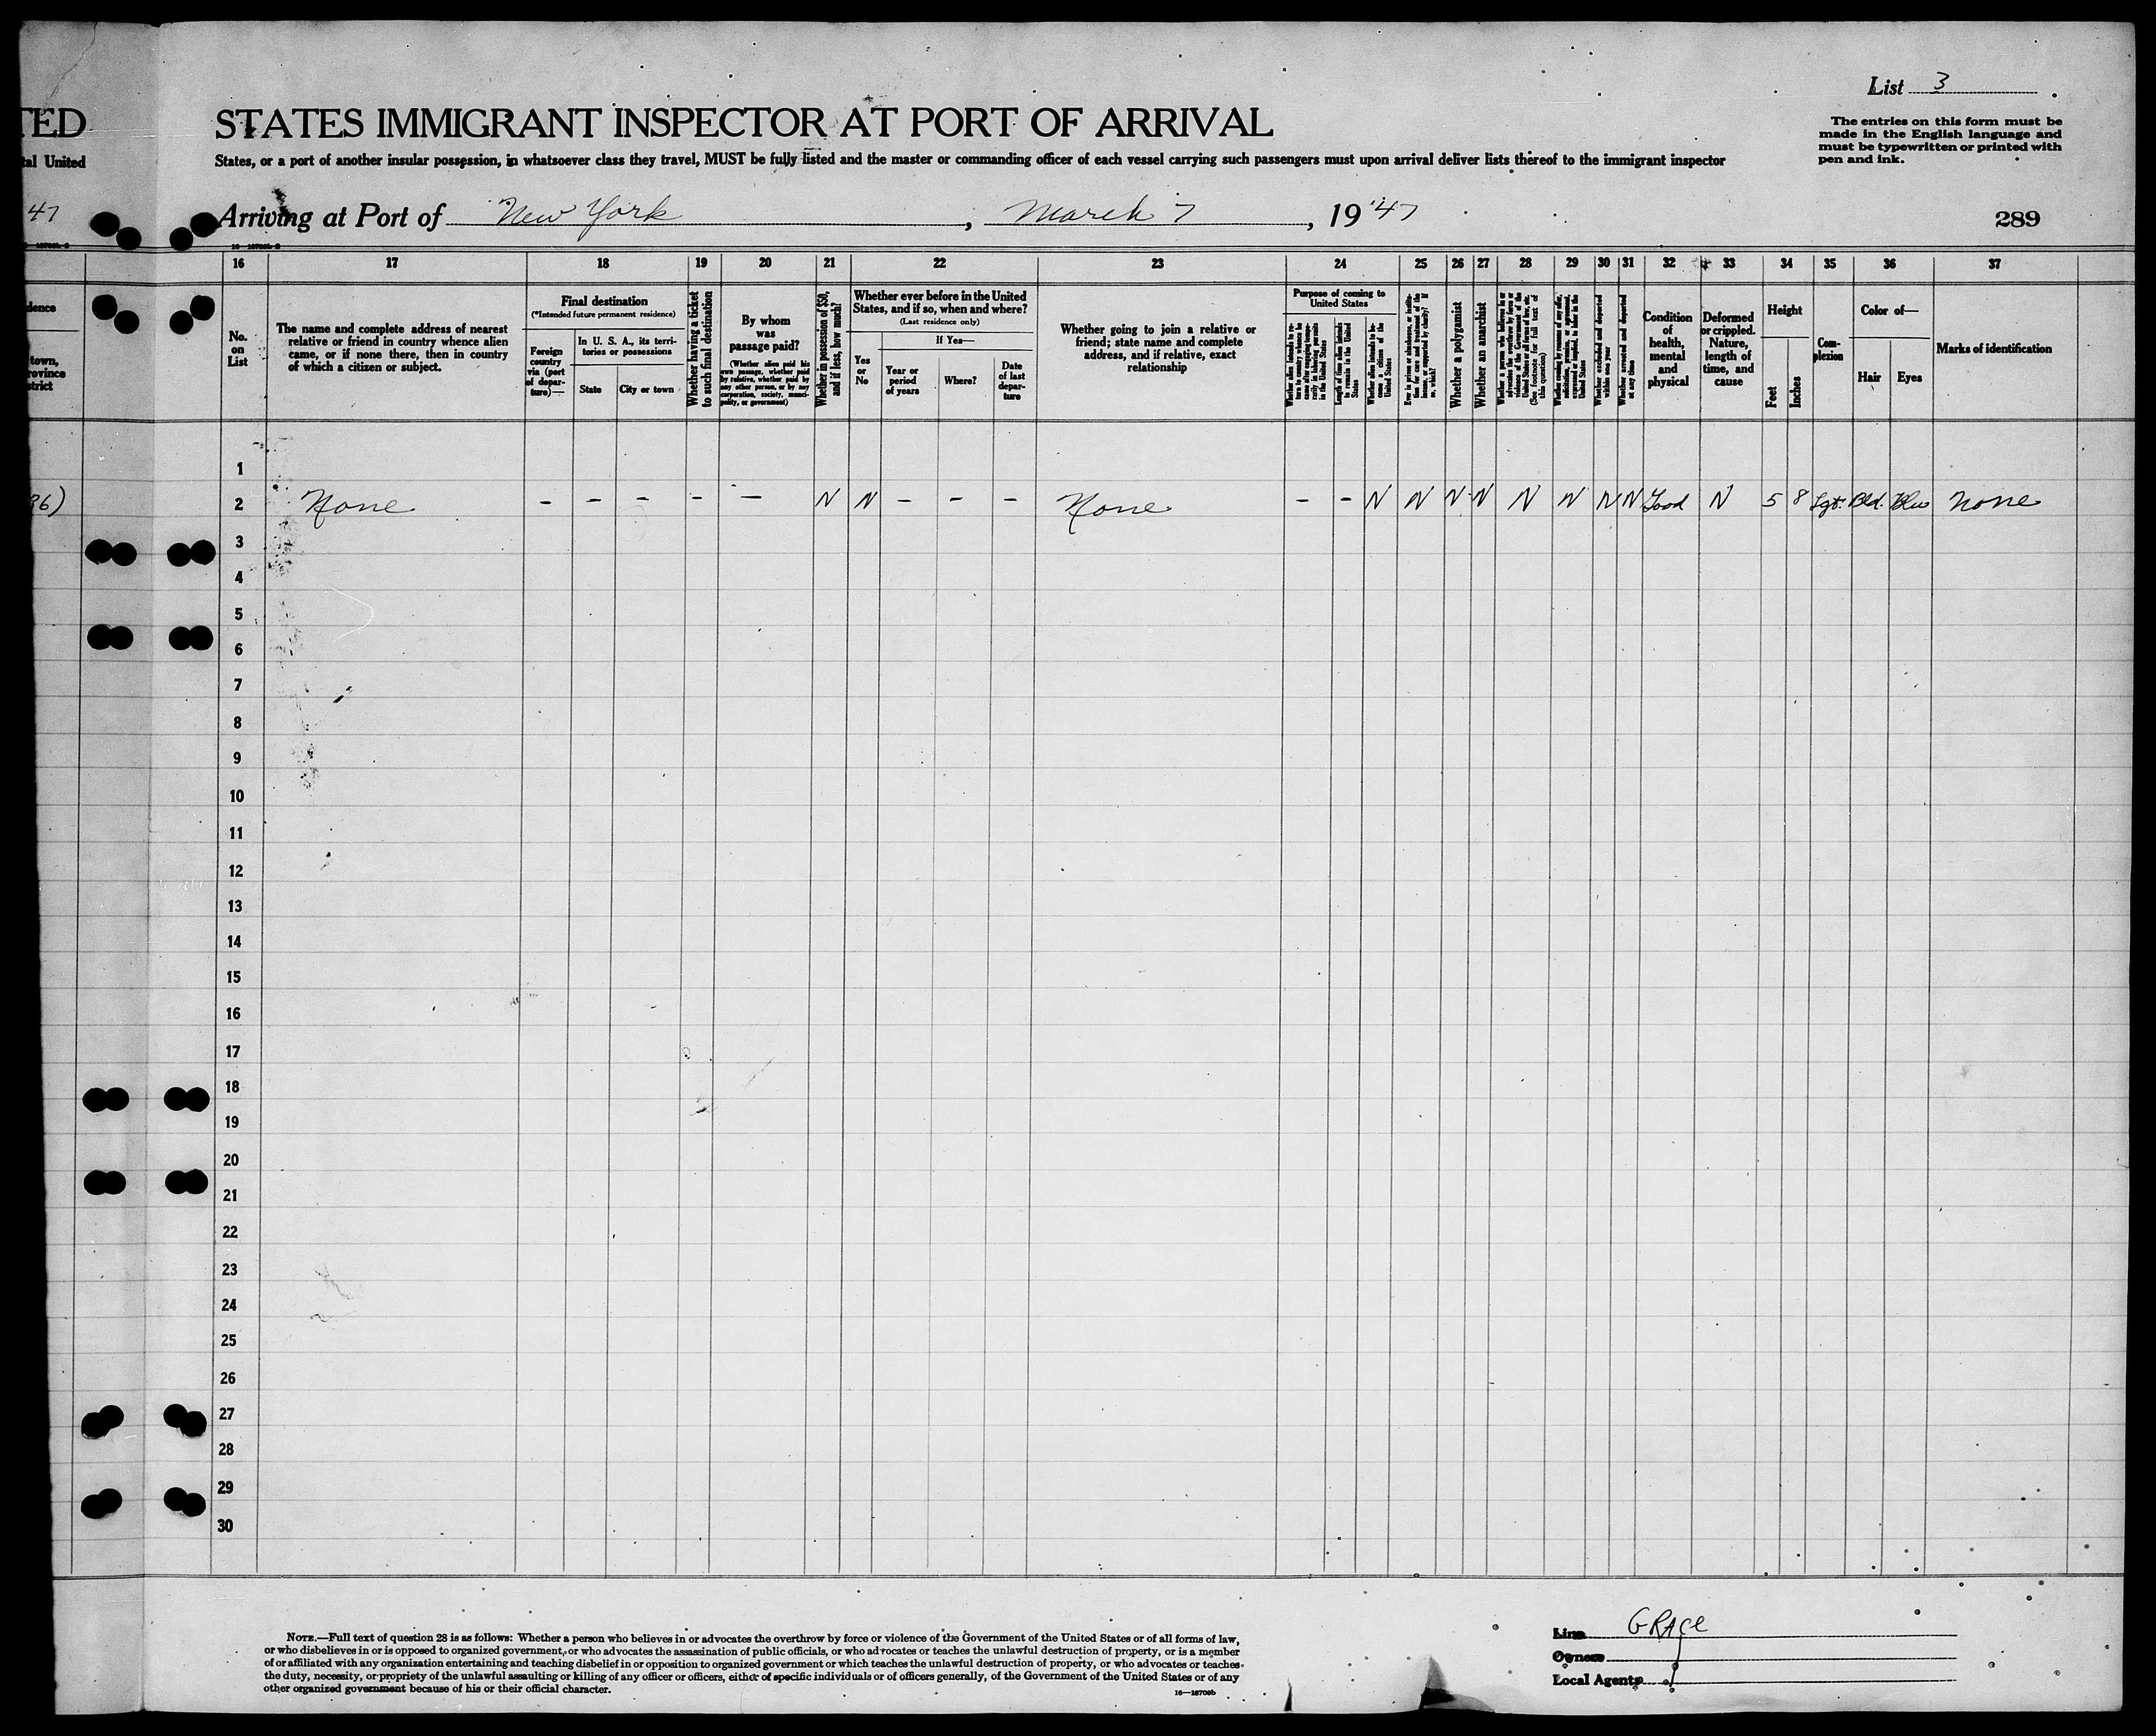 List 3
TED STATES IMMIGRANT INSPECTOR AT PORT OF ARRIVAL
The entries on this form must be
made in the English language and
must be typewritten or printed with
pen and ink.
tal United States, or a port of another insular possession, in whatsoever class they travel, MUST be fully listed and the master or commanding officer of each vessel carrying such passengers must upon arrival deliver lists thereof to the immigrant inspector
47 Arriving at Port of New York, March 7, 19'47
289
16 17 18 19 20 21 22 23 24 25 26 27 28 29 30 31 32 33 34 35 36 37
dence
town,
rovince
strict
No.
on
List
The name and complete address of nearest
relative or friend in country whence alien
came, or if none there, then in country
of which a citizen or subject.
Final destination
(*Intended future permanent residence)
Foreign
country
via (port
of depar-
ture)—
In U. S. A., its terri-
tories or possessions
State
City or town
Whether having a ticket
to such final destination
By whom
was
passage paid?
(Whether alien paid his
own passage, whether paid
by relative, whether paid by
any other person, or by any
corporation, society, munici-
pality, or government)
Whether in possession of $50,
and if less, how much?
Whether ever before in the United
States, and if so, when and where?
(Last residence only)
If Yes—
Yes
or
No
Year or
period
of years
Where?
Date
of last
depar-
ture
Whether going to join a relative or
friend; state name and complete
address, and if relative, exact
relationship
Purpose of coming to
United States
Whether alien intends to re-
turn to country whence he
came after engaging tempo-
rarily in laboring pursuits
in the United States
Length of time alien intends
to remain in the United
States
Whether alien intends to be-
come a citizen of the
United States
Ever in prison or almshouse, or institu-
tion for care and treatment of the
insane, or supported by charity? If
so, which?
Whether a polygamist
Whether an anarchist
Whether a person who believes in or
advocates the overthrow by force or
violence of the Government of the
United States or all forms of law, etc.
(See footnote for full text of
this question)
Whether coming by reason of any offer,
solicitation, promise, or agreement,
expressed or implied, to labor in the
United States
Whether excluded and deported
within one year
Whether arrested and deported
at any time
Condition
of
health,
mental
and
physical
Deformed
or crippled.
Nature,
length of
time, and
cause
Height
Feet
Inches
Com-
plexion
Color of—
Hair
Eyes
Marks of identification
1
36) 2 None – – – – – N N – – – None – – N N N N N N N N Good N 5 8 Lgt. Bld. Blu None
3
4
5
6
7
8
9
10
11
12
13
14
15
16
17
18
19
20
21
22
23
24
25
26
27
28
29
30
NOTE.—Full text of question 28 is as follows: Whether a person who believes in or advocates the overthrow by force or violence of the Government of the United States or of all forms of law,
or who disbelieves in or is opposed to organized government, or who advocates the assassination of public officials, or who advocates or teaches the unlawful destruction of property, or is a member
of or affiliated with any organization entertaining and teaching disbelief in or opposition to organized government or which teaches the unlawful destruction of property, or who advocates or teaches
the duty, necessity, or propriety of the unlawful assaulting or killing of any officer or officers, either of specific individuals or of officers generally, of the Government of the United States or of any
other organized government because of his or their official character.
16—18706b
Line GRACE
Owners
Local Agents